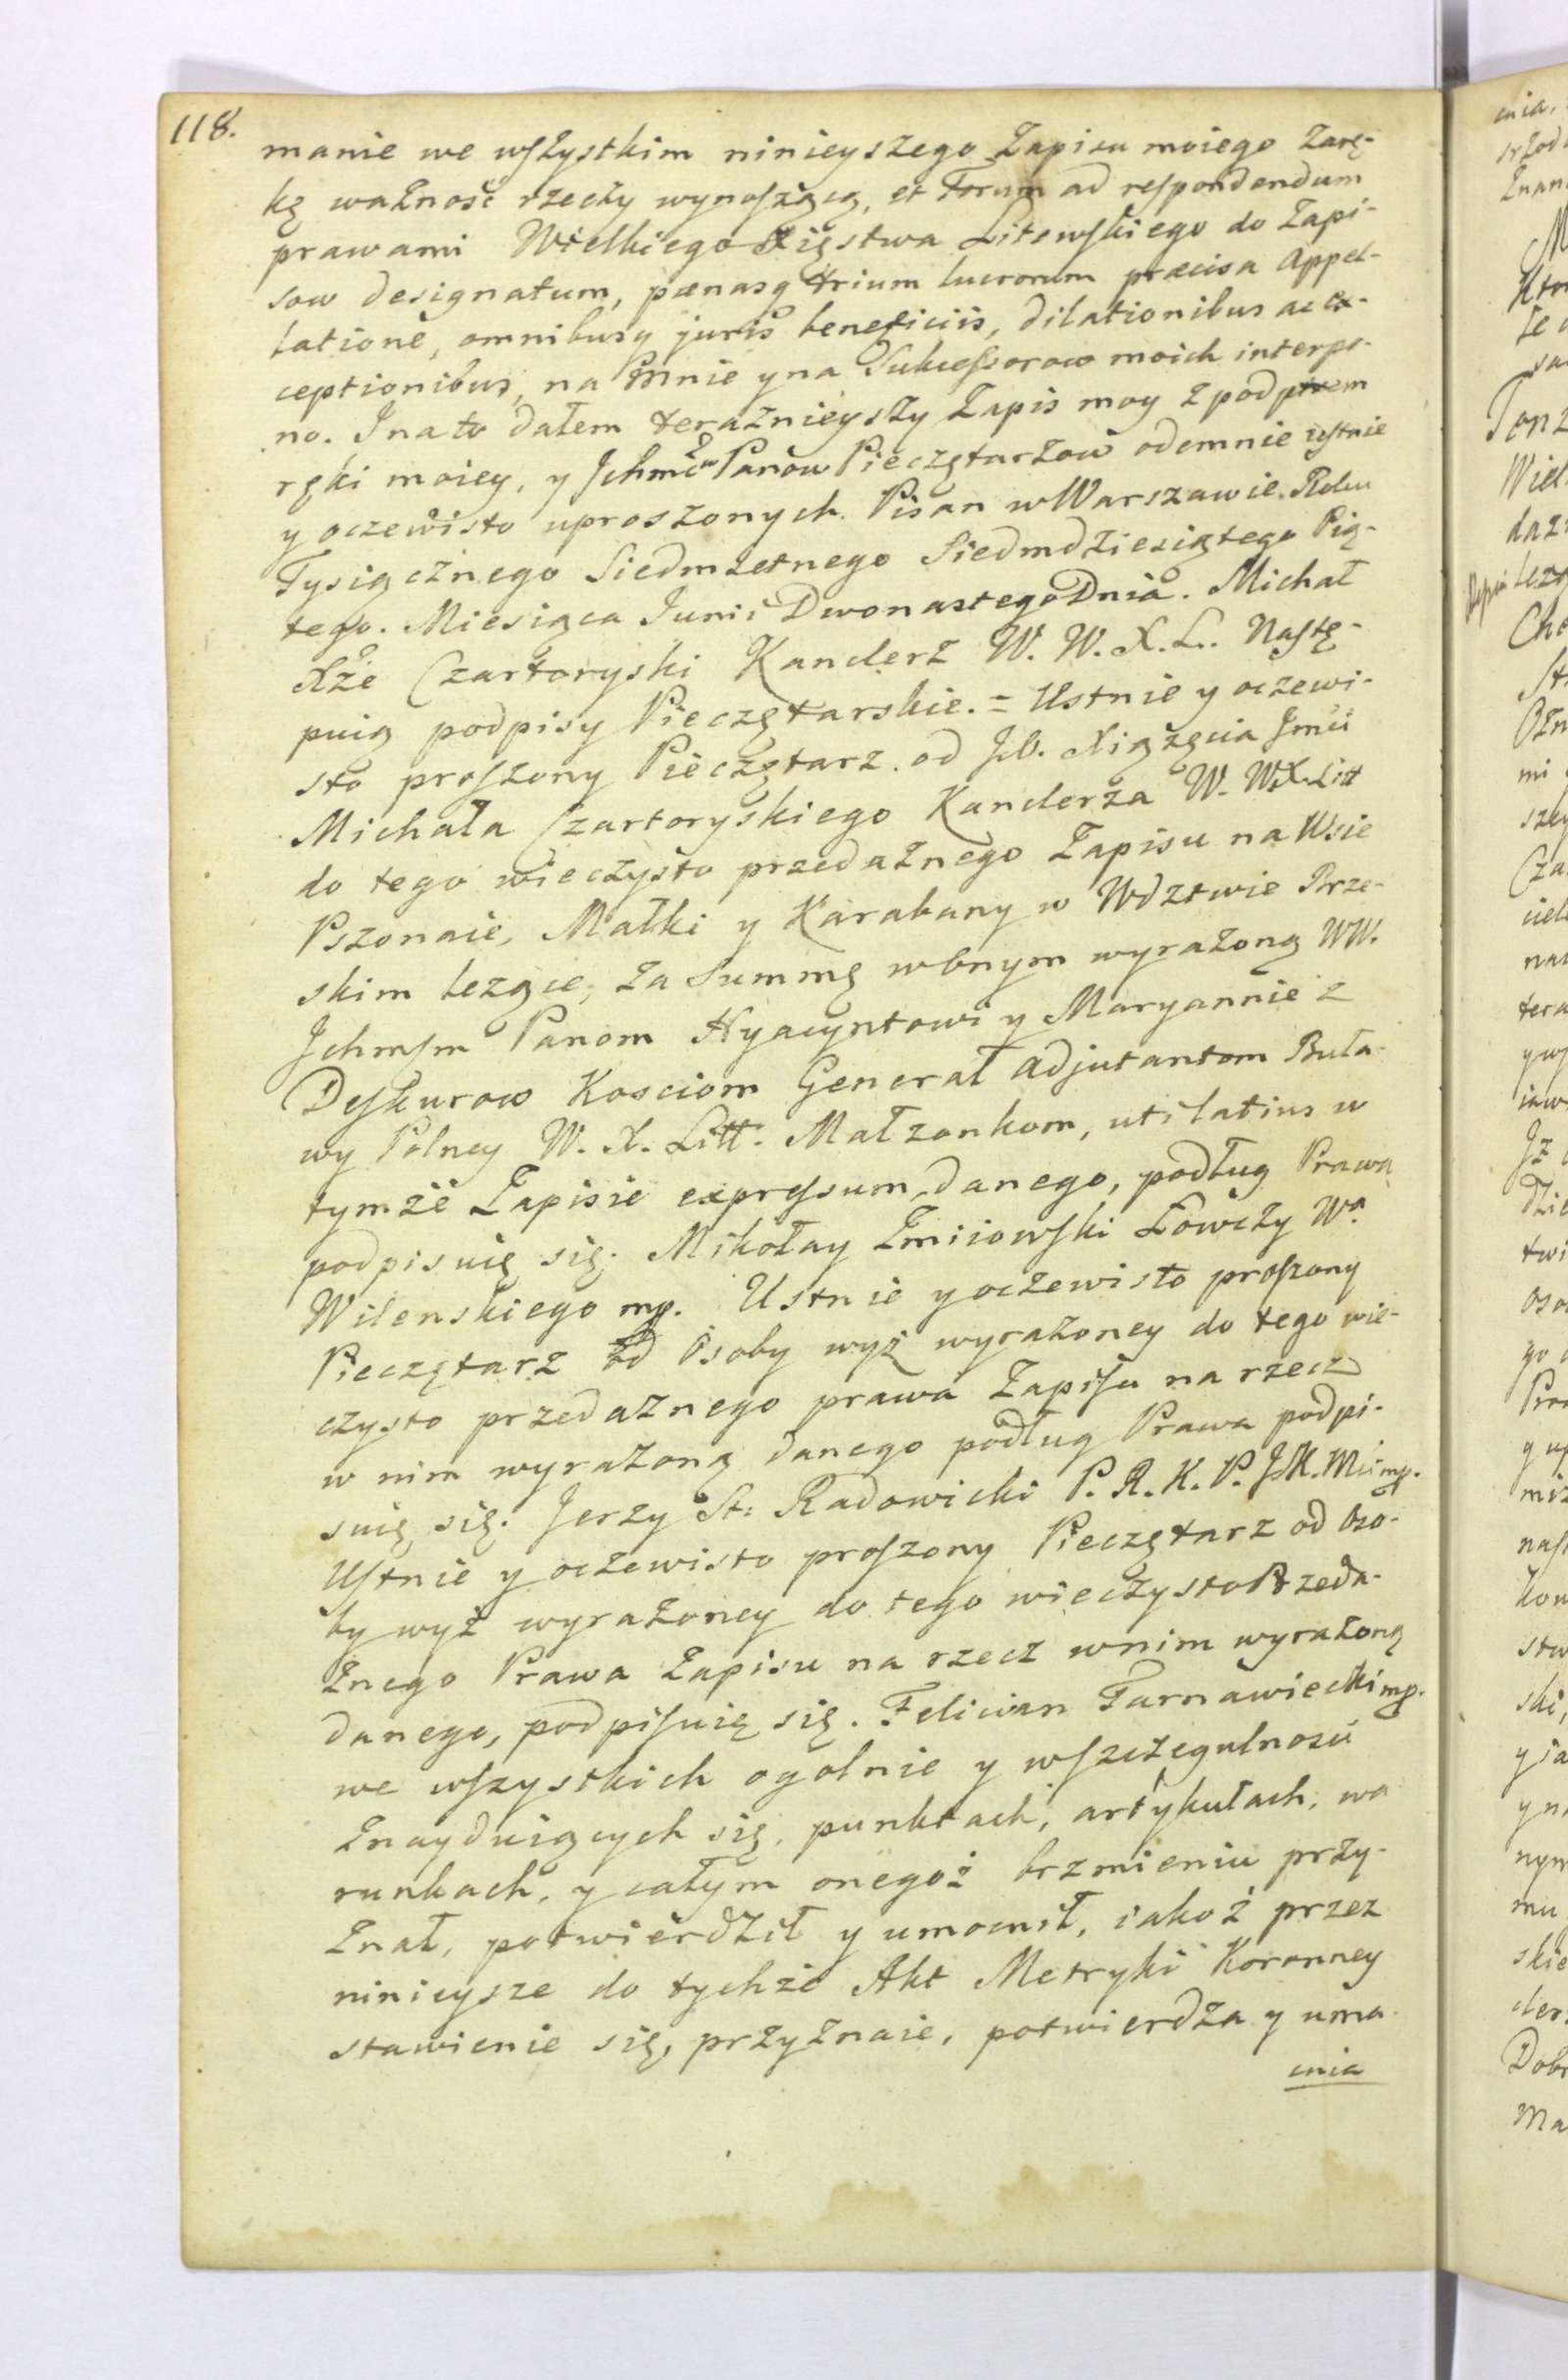 118.
manie we wszystkim ninieyszego Zapisu moiego Zarę-
kę ważnośc rzeczy wynoszącą, et Forum ad respondendum
prawami Wielkiego Xięstwa Litewskiego do Zapi-
sow designatum, pænasq trium lucrorum præcisa Appel-
latione, omnibusq juris beneficiis, dilationibus ac ex-
ceptionibus, na mnie y na Sukcessorow moich interpo-
no. I na to dałem teraznieyszy Zapis moy z podpisem
ręki moiey, y Ichmcw Panow Pieczętarzow odemnie ustnie
y oczewisto uproszonych. Pisan w Warszawie. Roku
Tysiącznego Siedmsetnego Siedmdziesiątego Pią-
tego. Miesiąca Junii Dwonastego Dnia. Michał
Xże Czartoryski Kanclerz W. W. X. L. Nastę-
puią podpisy Pieczętarskie. = Ustnie y oczewi-
sto proszony Pieczętarz od JO. Xiążęcia Jmci
Michała Czartoryskiego Kanclerza W. W. X. Litt
do tego wieczysto przedażnego Zapisu na Wsie
Pszonaie, Małki y Karabany w Wdztwie Brze-
skim leżące, za Summę w onym wyrażoną WW.
Ichmsm Panom Hyacyntowi y Maryannie z
Deszkurow Kosciom General Adjutantom Buła-
wy Polney W. X. Litt. Małzonkom, uti latius w
tymże Zapisie expressum, danego, podług Prawa
podpisuię się. Mikołay Zmiiowski Łowczy Wa
Wilenskiego mp. Ustnie y oczewisto proszony
Pieczętarz od Osoby wyż wyrażoney do tego wie-
czysto przedażnego prawa Zapisu na rzecz
w nim wyrażoną danego podług Prawa podpi-
suię się. Jerzy St: Radowicki P. R. K. P. JK. Mci mp.
Ustnie y oczewisto proszony Pieczętarz od Oso-
by wyż wyrażoney do tego wieczysto Przeda-
żnego Prawa Zapisu na rzecz w nim wyrażoną
danego, podpisuię się. Felician Tarnawiecki mp.
we wszystkich ogolnie y wszczegulnosci
znayduiących się, punktach, artykułach, wa
runkach, y całym onegoż brzmieniu przy-
znał, potwierdził y umocnił, iakoż przez
ninieysze do tychże Akt Metryki Koronney
stawienie się, przyznaie, potwierdza y uma-
cnia